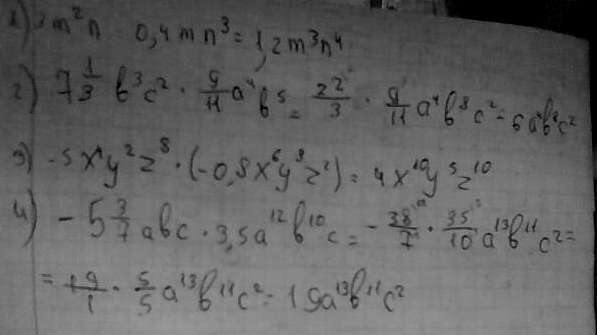 1) 3m²n 0,4mn³ = 1,2m³n⁴
2) 7 1/3 b³c² · 9/11 a⁴b⁵ = 22/3 · 9/11 a⁴b⁸c² = 6a⁴b⁸c²
3) -5x⁴y²z⁸ · (-0,8x⁶y³z²) = 4x¹⁰y⁵z¹⁰
4) -5 3/7 abc · 3,5a¹²b¹⁰c = -38/7 · 35/10 a¹³b¹¹c² =
= 19/1 · 5/5 a¹³b¹¹c² = 19a¹³b¹¹c²